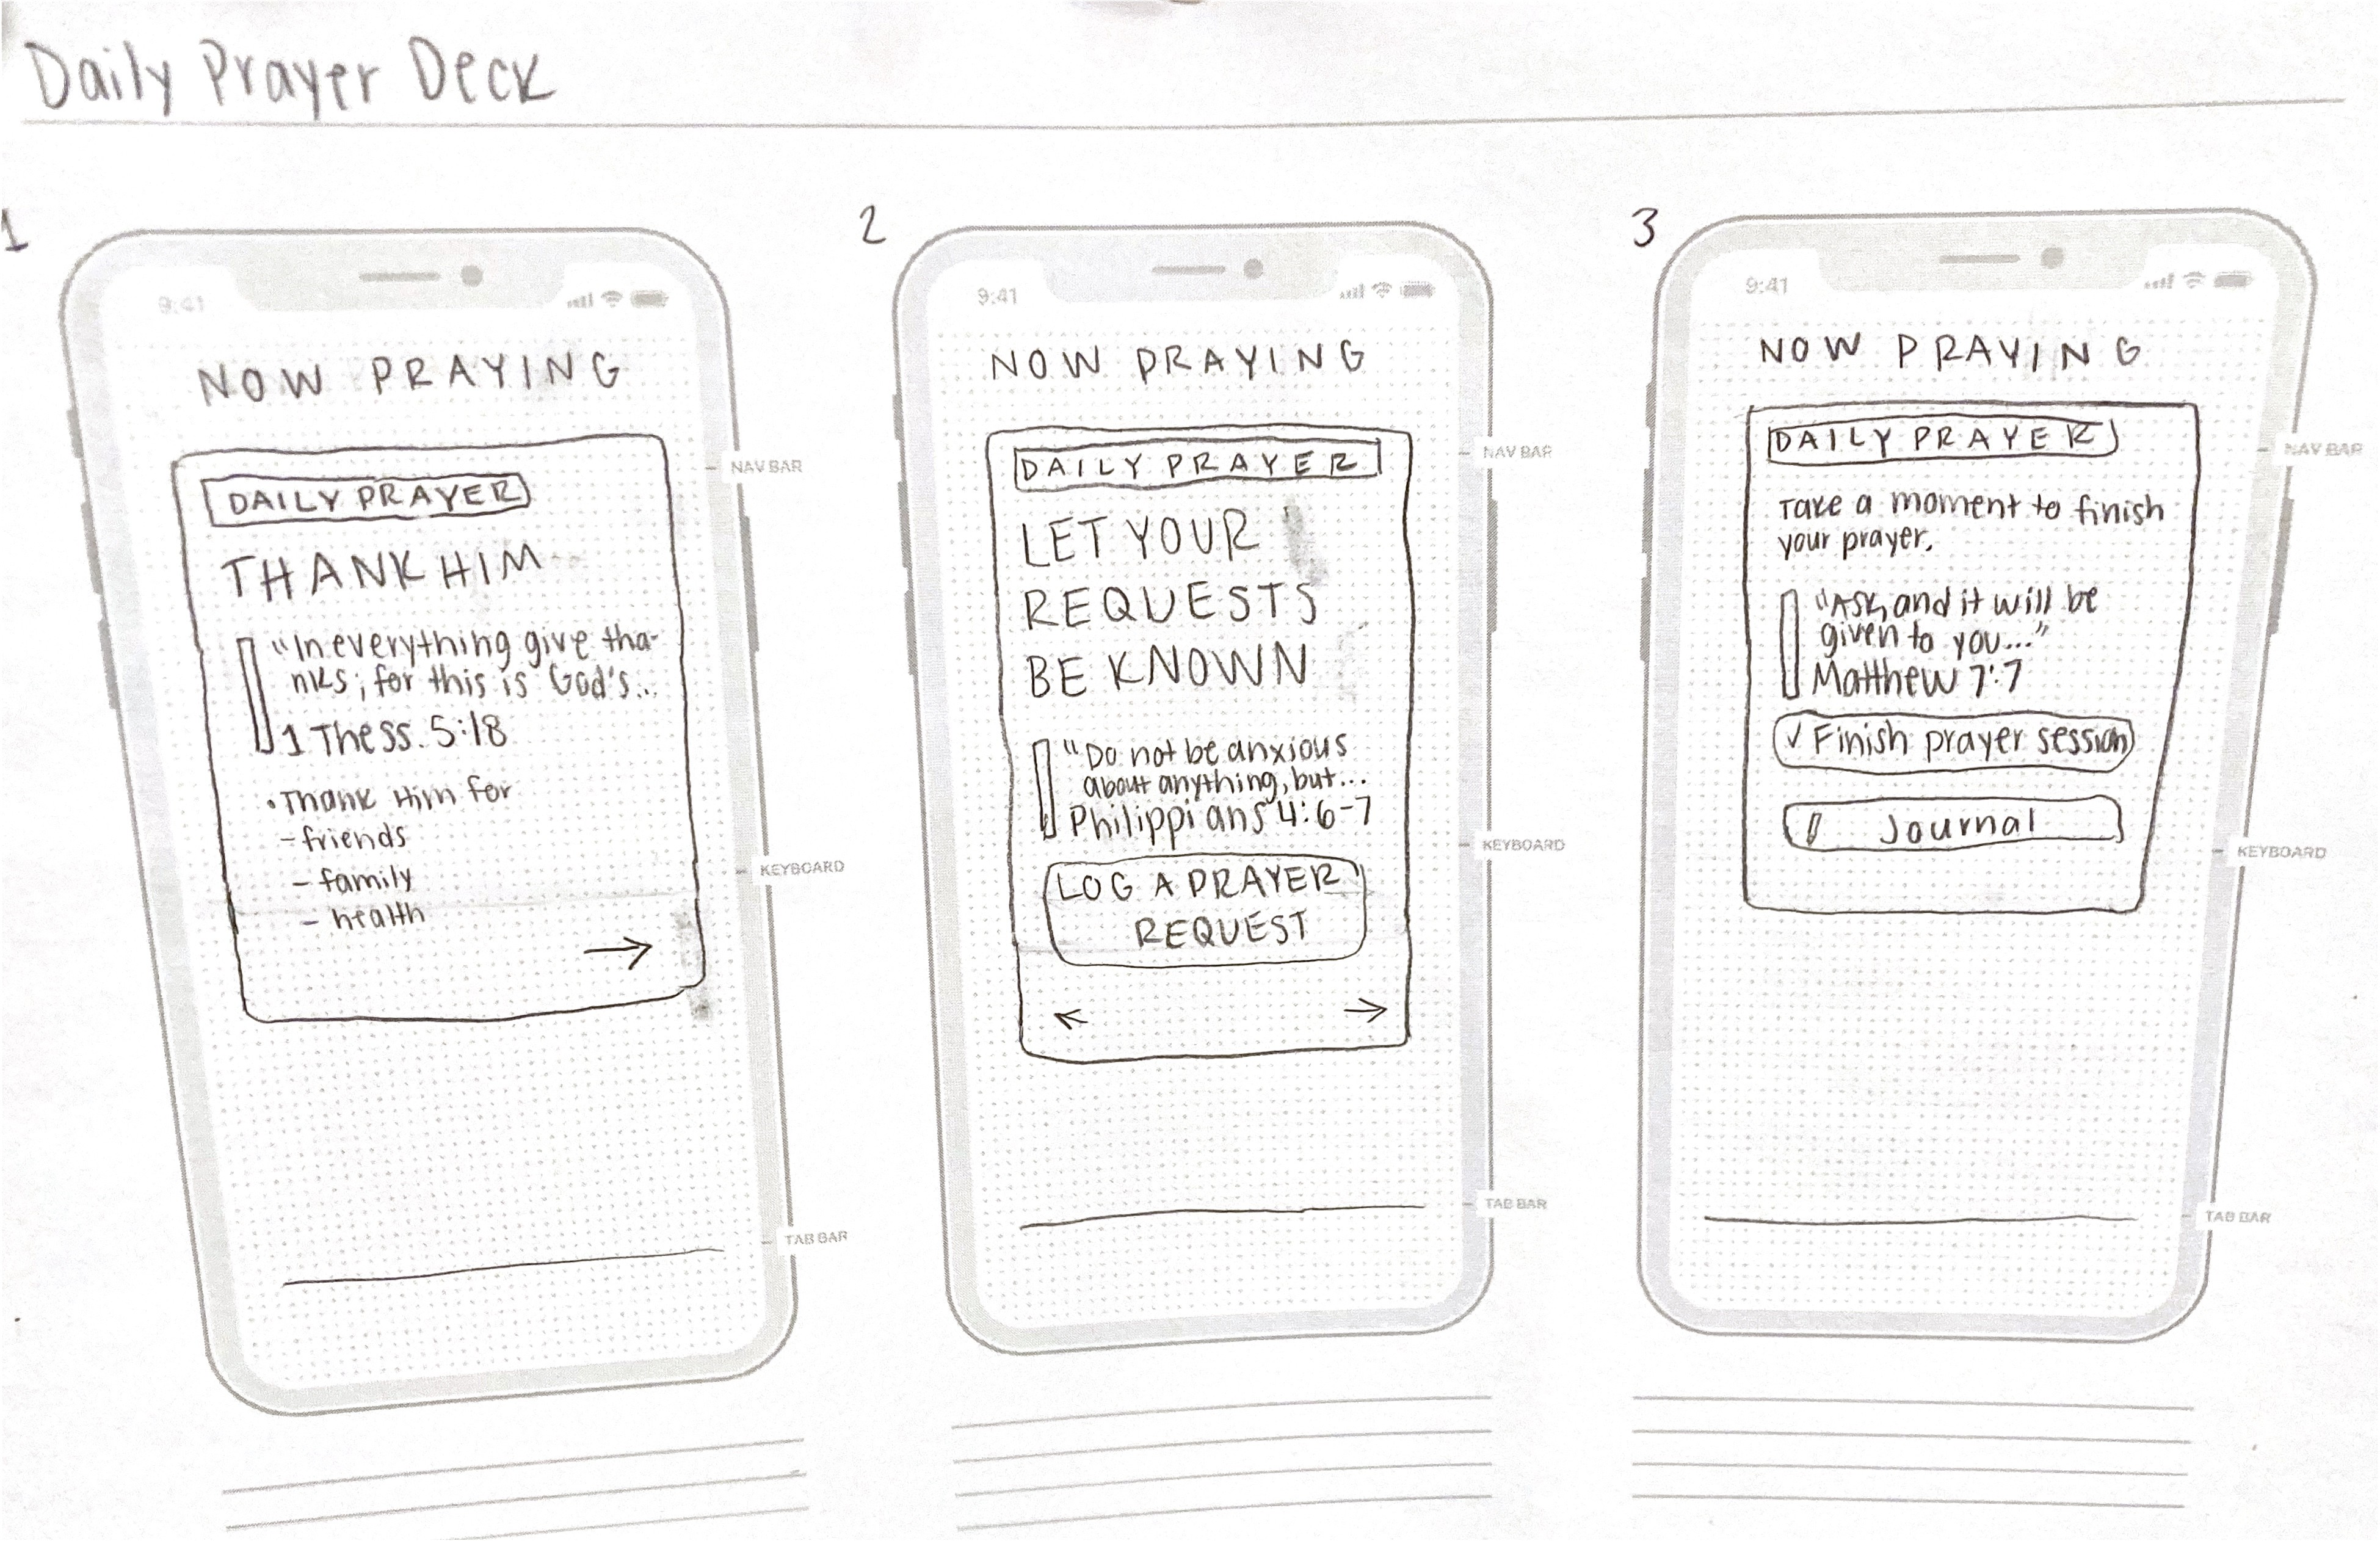 Daily Prayer Deck
1
9:41
NOW PRAYING
DAILY PRAYER
THANK HIM
"In everything give tha-
nks; for this is God's...
1 Thess. 5:18
• Thank Him for
- friends
- family
- health
→
NAV BAR
KEYBOARD
TAB BAR
2
9:41
NOW PRAYING
DAILY PRAYER
LET YOUR
REQUESTS
BE KNOWN
"Do not be anxious
about anything, but...
Philippians 4:6-7
LOG A PRAYER
REQUEST
← →
NAV BAR
KEYBOARD
TAB BAR
3
9:41
NOW PRAYING
DAILY PRAYER
Take a moment to finish
your prayer.
"Ask, and it will be
given to you..."
Matthew 7:7
✓ Finish prayer session
Journal
NAV BAR
KEYBOARD
TAB BAR